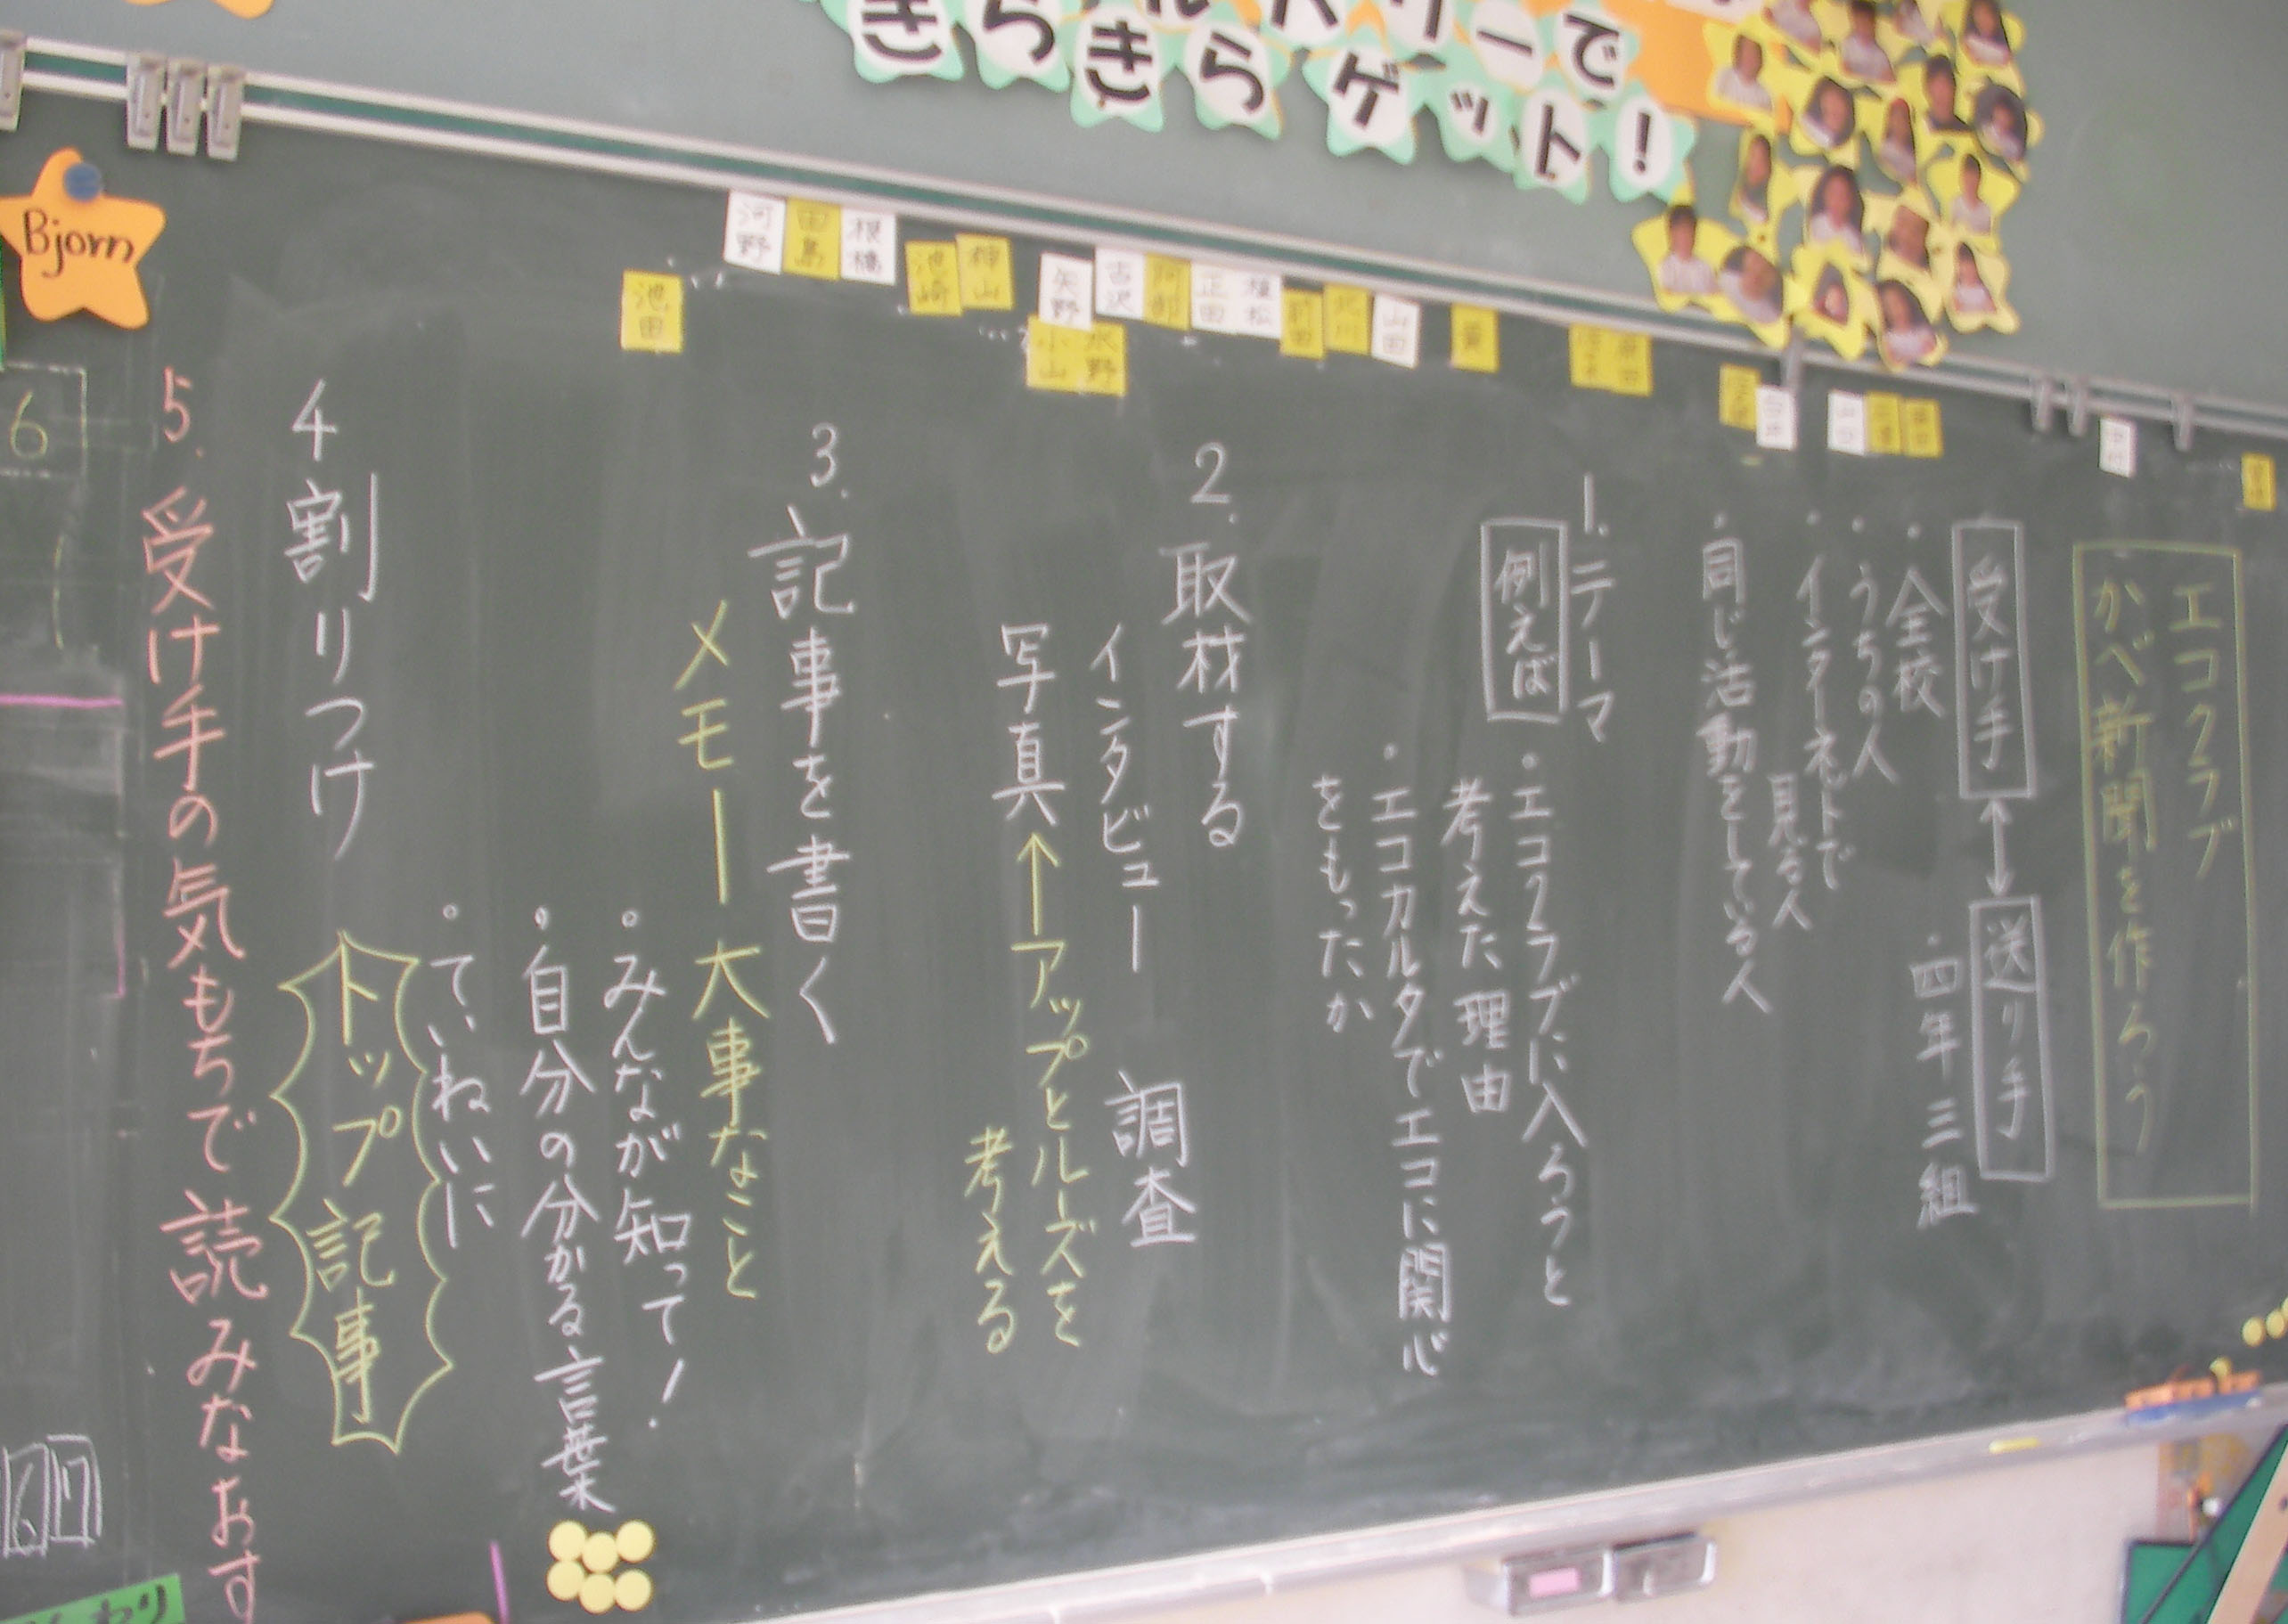 きらきらゲット!
Bjorn
河野
田島
根橋
池崎
神山
池田
矢野
小山
水野
吉沢
阿部
正田
植松
前田
北川
山田
黄
エコクラブ
かべ新聞を作ろう
受け手↔送り手
・全校
・うちの人
・インターネットで
見る人
・同じ活動をしている人
・四年三組
1.テーマ
例えば
・エコクラブに入ろうと
考えた理由
・エコカルタでエコに関心
をもったか
2.取材する
インタビュー 調査
写真←アップとルーズを
考える
3.記事を書く
メモー大事なこと
・みんなが知って!
・自分の分かる言葉
・ていねいに
4割りつけ
トップ記事
5.受け手の気もちで読みなおす
6